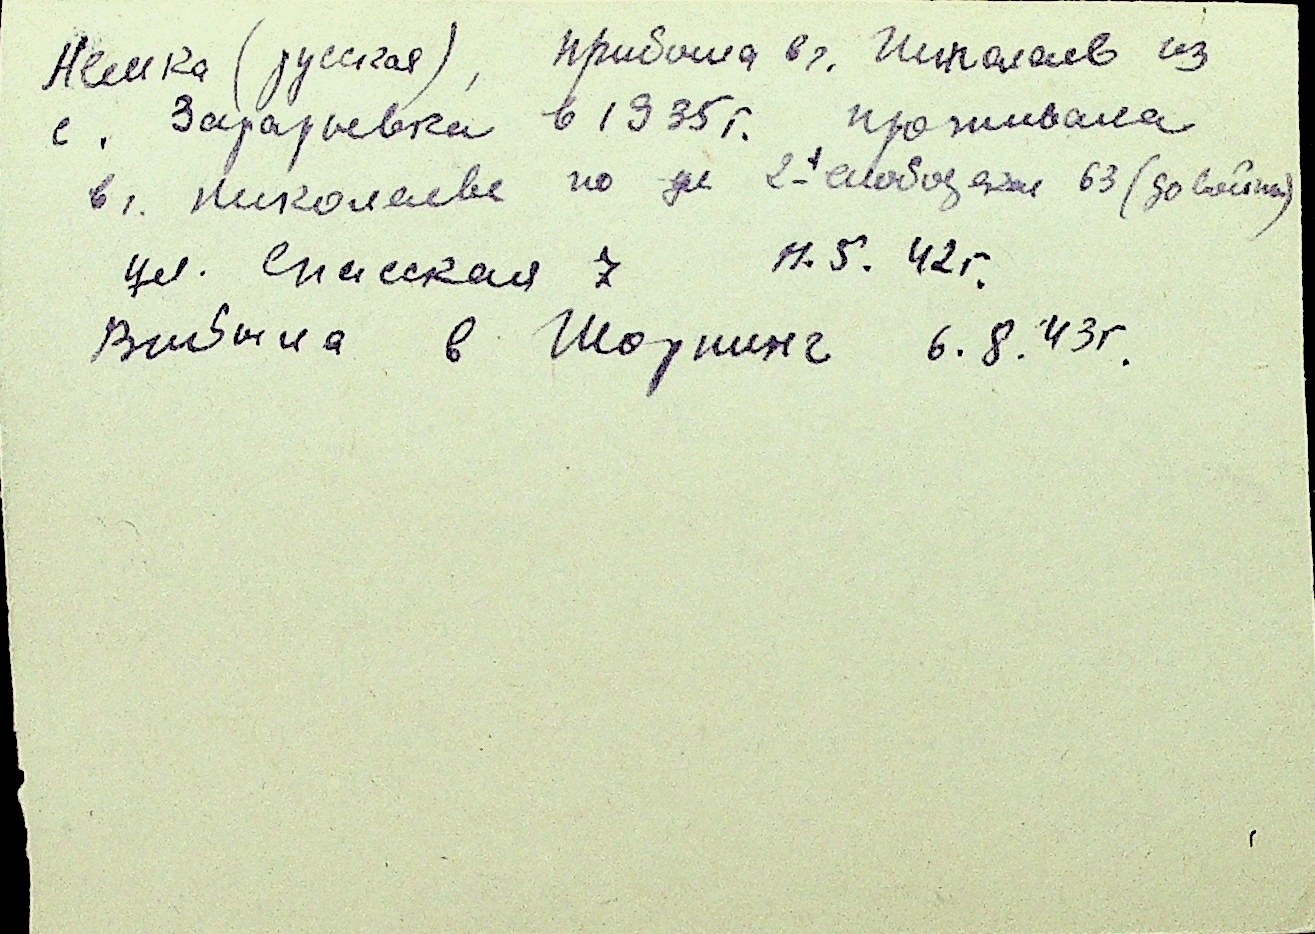 Немка (русская), прибыла в г. Николаев из
с. Зарарьевка в 1935г. проживала
в г. Николаеве по ул 2-я слободская 63 (до войны)
ул. Спасская 7 11.5.42г.
Выбыла в Шорнинг 6.8.43г.